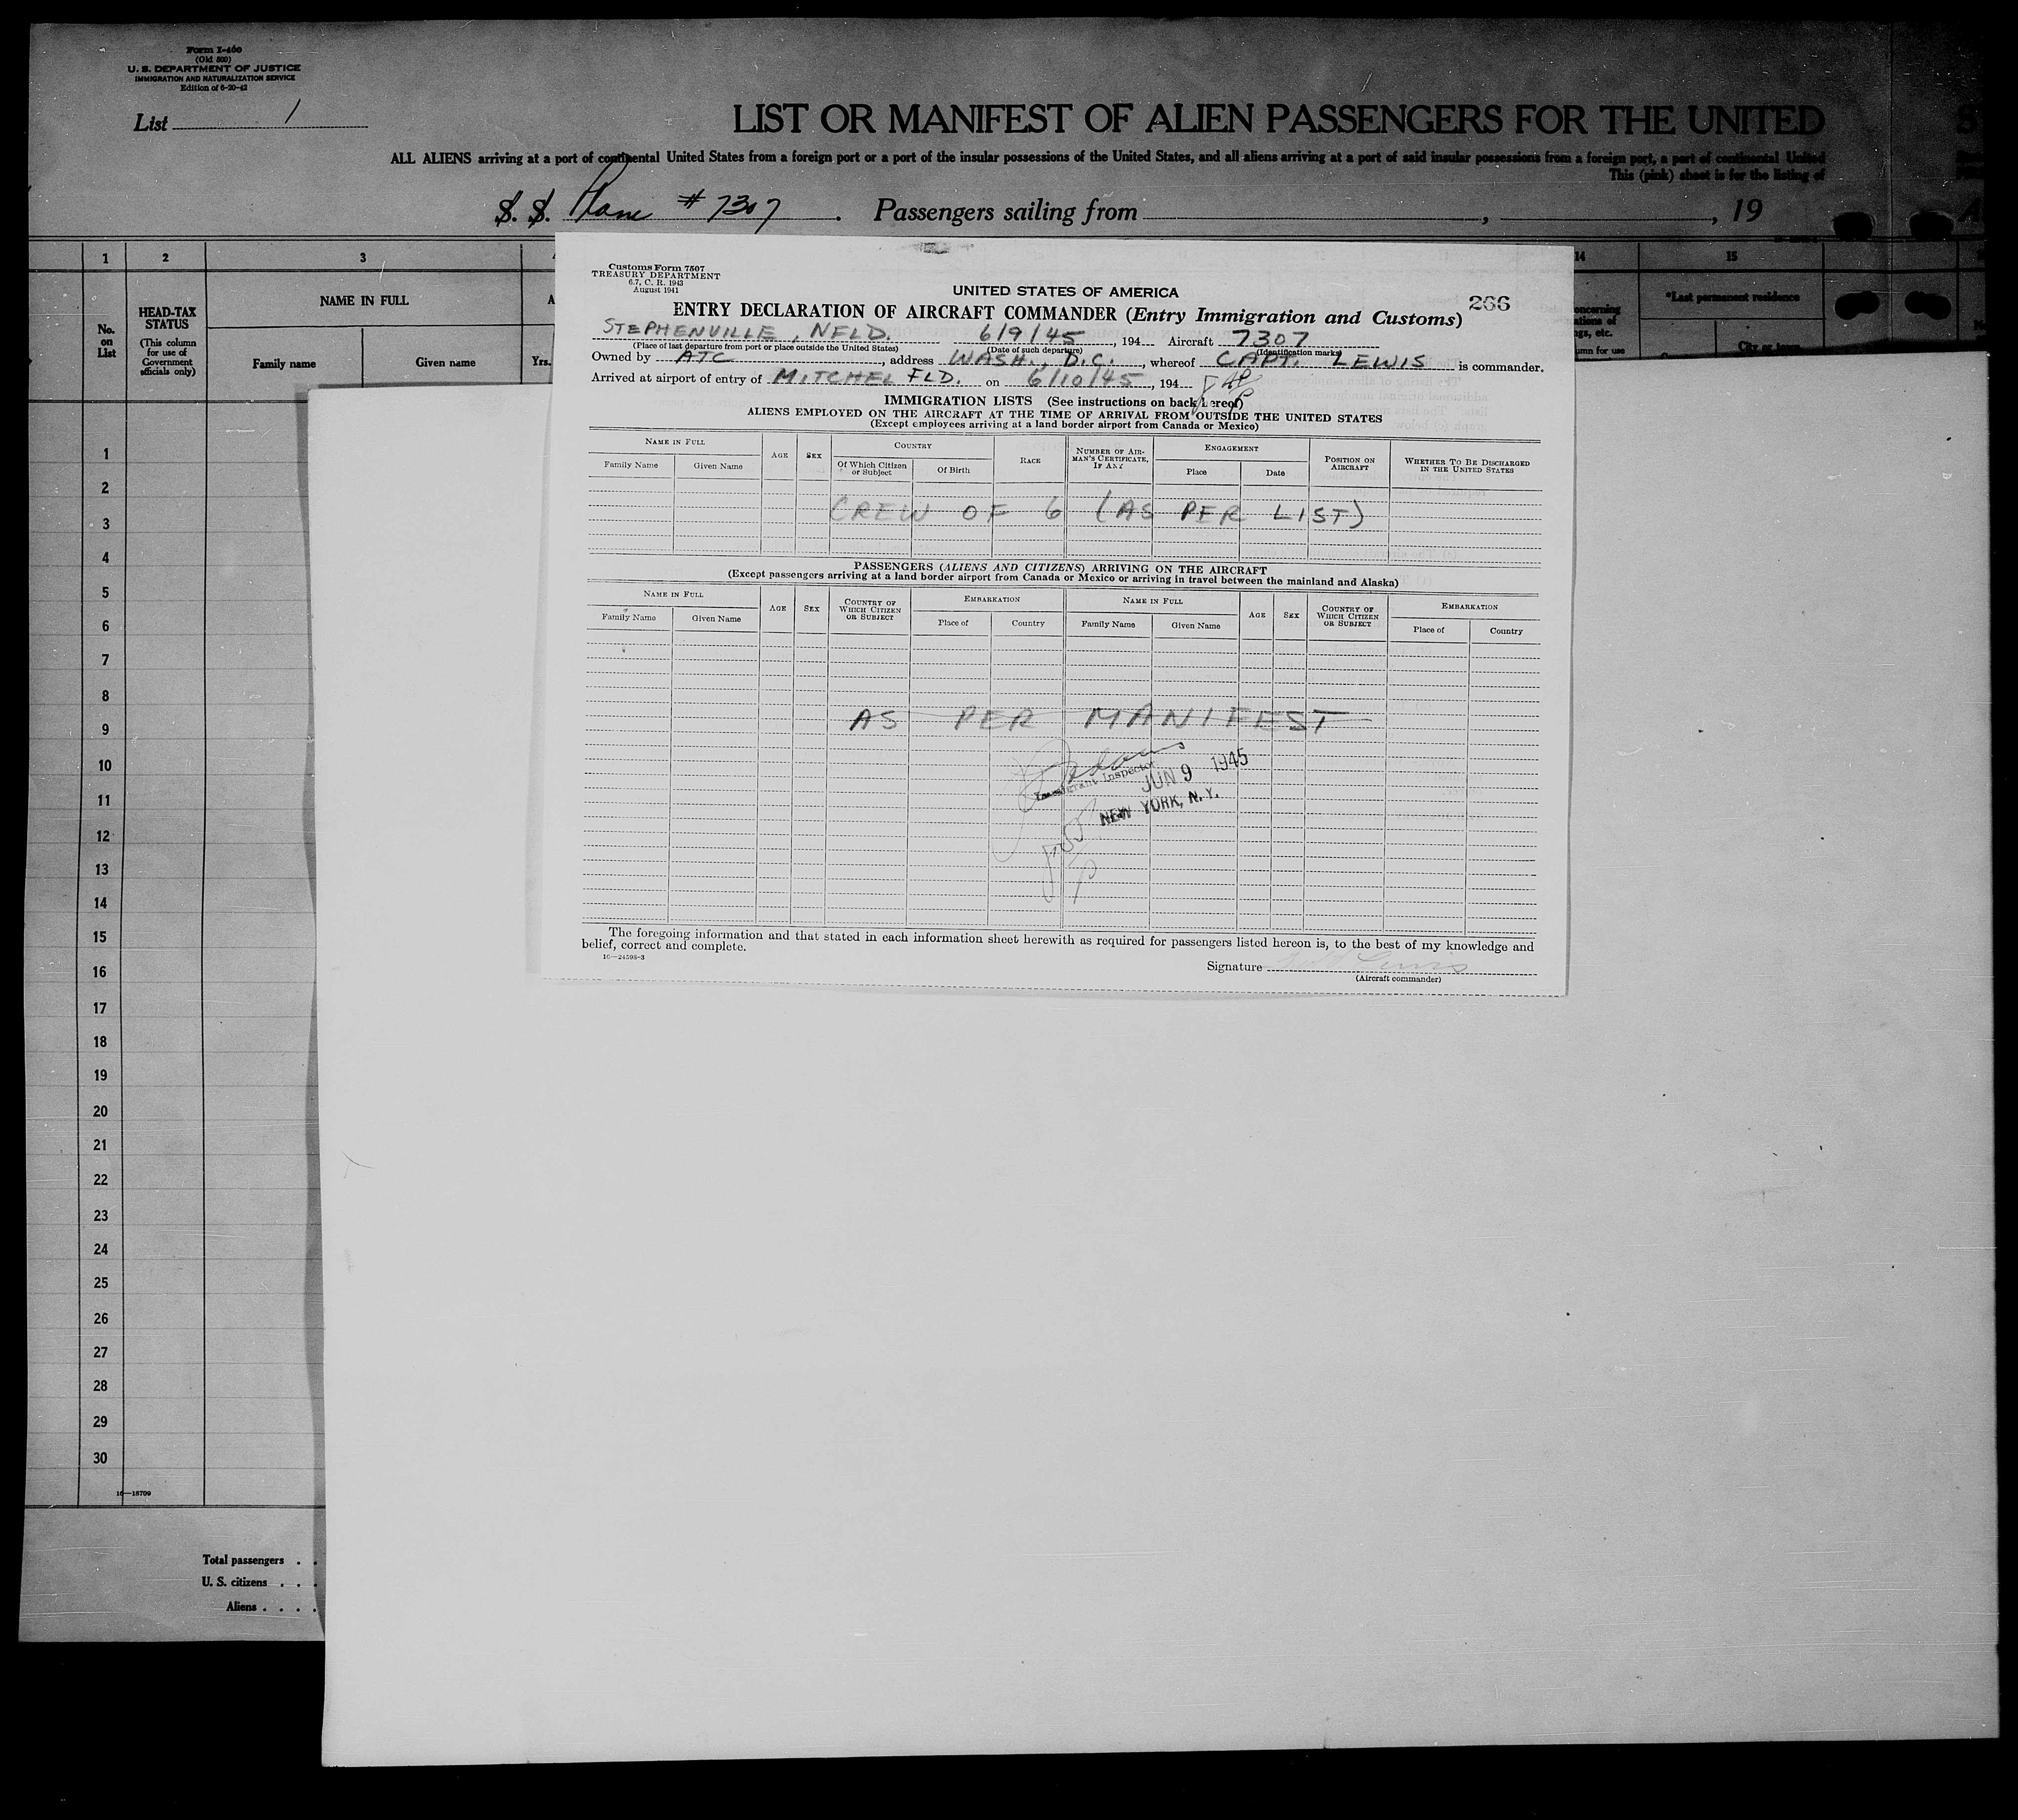 Form I-460
(Old 500)
U. S. DEPARTMENT OF JUSTICE
IMMIGRATION AND NATURALIZATION SERVICE
Edition of 6-20-42
List 1
LIST OR MANIFEST OF ALIEN PASSENGERS FOR THE UNITED
ALL ALIENS arriving at a port of continental United States from a foreign port or a port of the insular possessions of the United States, and all aliens arriving at a port of said insular possessions from a foreign port, a port of continental United
This (pink) sheet is for the listing of
S. S. Plane # 7307 . Passengers sailing from , , 19
1 2 3 14 15
No. on List
HEAD-TAX STATUS
(This column for use of Government officials only)
NAME IN FULL
Family name Given name Yrs.
*Last permanent residence
City or town
Customs Form 7507
TREASURY DEPARTMENT
6.7, C. R. 1943
August 1941
266
UNITED STATES OF AMERICA
ENTRY DECLARATION OF AIRCRAFT COMMANDER (Entry Immigration and Customs)
STEPHENVILLE, NFLD. 6/9/45, 194 Aircraft 7307
(Place of last departure from port or place outside the United States) (Date of such departure) (Identification marks)
Owned by ATC, address WASH., D.C., whereof CAPT. LEWIS is commander.
Arrived at airport of entry of MITCHEL FLD. on 6/10/45, 194
IMMIGRATION LISTS (See instructions on back hereof)
ALIENS EMPLOYED ON THE AIRCRAFT AT THE TIME OF ARRIVAL FROM OUTSIDE THE UNITED STATES
(Except employees arriving at a land border airport from Canada or Mexico)
NAME IN FULL
Family Name Given Name
AGE SEX
COUNTRY
Of Which Citizen or Subject Of Birth
RACE
NUMBER OF AIRMAN'S CERTIFICATE, IF ANY
ENGAGEMENT
Place Date
POSITION ON AIRCRAFT
WHETHER TO BE DISCHARGED IN THE UNITED STATES
CREW OF 6 (AS PER LIST)
PASSENGERS (ALIENS AND CITIZENS) ARRIVING ON THE AIRCRAFT
(Except passengers arriving at a land border airport from Canada or Mexico or arriving in travel between the mainland and Alaska)
NAME IN FULL AGE SEX COUNTRY OF WHICH CITIZEN OR SUBJECT EMBARKATION NAME IN FULL AGE SEX COUNTRY OF WHICH CITIZEN OR SUBJECT EMBARKATION
Family Name Given Name Place of Country Family Name Given Name Place of Country
AS PER MANIFEST
Immigrant Inspector
JUN 9 1945
NEW YORK, N. Y.
The foregoing information and that stated in each information sheet herewith as required for passengers listed hereon is, to the best of my knowledge and
belief, correct and complete.
16—24598-3
Signature Lewis
(Aircraft commander)
1
2
3
4
5
6
7
8
9
10
11
12
13
14
15
16
17
18
19
20
21
22
23
24
25
26
27
28
29
30
16—18709
Total passengers . .
U. S. citizens . . .
Aliens . . . .